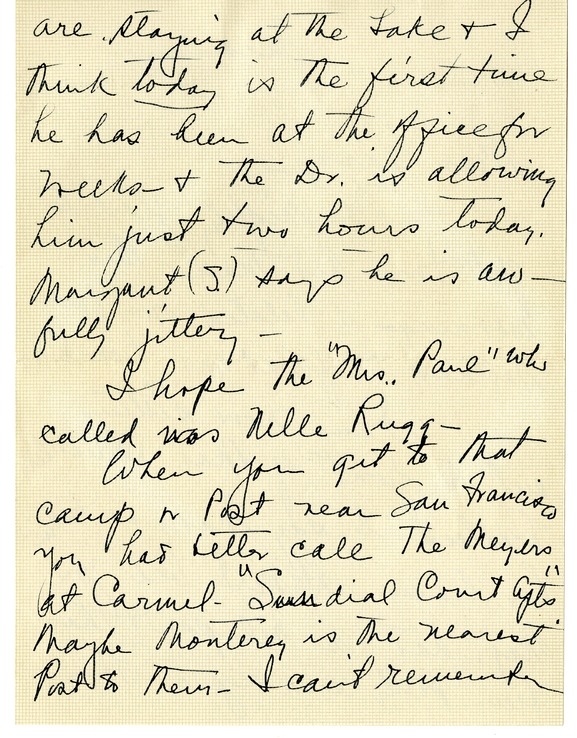 are staying at the Lake + I
think today is the first time
he has been at the office for
weeks - + the Dr. is allowing
him just two hours today.
Margaret (S.) says he is aw-
fully jittery -
I hope the "Mrs. Paul" who
called was Nelle Rugg -
When you get to that
camp or Post near San Francisco
you had better call The Meyers
at Carmel - "Sundial Court Apts"
Maybe Monterey is the nearest
Post to them - I can't remember